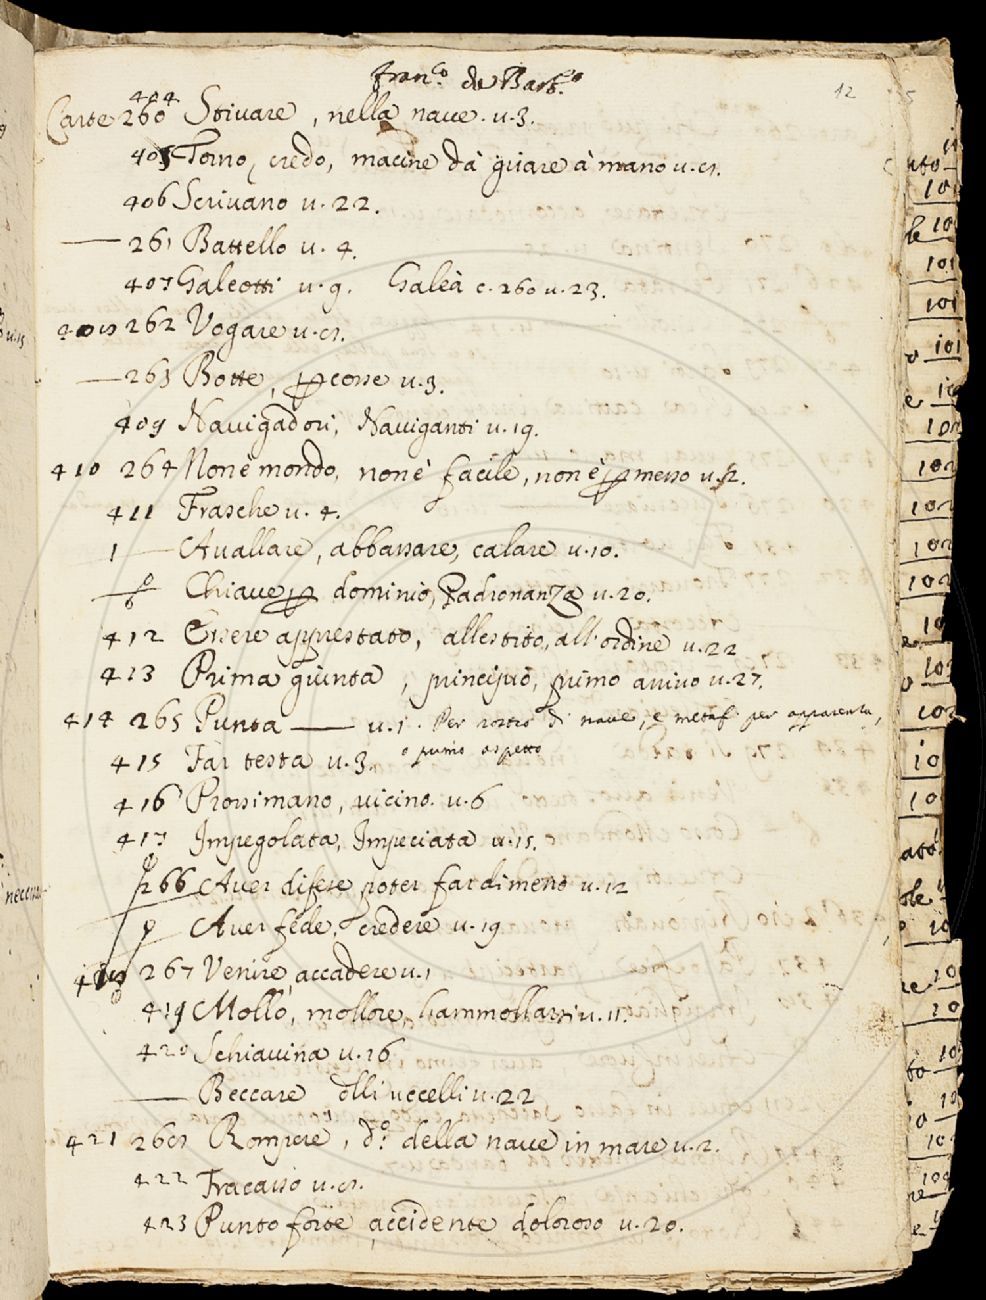 Fran.co da Barb.o
12
404
Carte 260 Stivare, nella nave. v. 3.
405 Torno, credo, macine da girare à mano v. 8.
406 Scrivano v. 22.
— 261 Battello v. 4.
407 Galeotti v. 9. Galèa c. 260 v. 23.
408 262 Vogare v. 8.
— 263 Botte, percosse v. 3.
409 Navigadori, Naviganti v. 19.
410 264 Non è mondo, non è facile, non è permesso v. 2.
411 Frasche v. 4.
1 — Avallare, abbassare, calare v. 10.
Chiave per dominio, Padronanza v. 20.
412 Essere apprestato, allestito, all'ordine v. 22
413 Prima giunta, principio, primo arrivo v. 27.
414 265 Punta — v. 1. Per rostro di nave, e metaf. per apparenta,
o primo aspetto
415 Far testa v. 3.
416 Prossimano, vicino. v. 6
417 Impegolata, Impeciata v. 15.
266 Aver difese poter far di meno v. 12
Aver fede, credere v. 19
418 267 Venire, accadere v. 1
419 Mollò, mollore, hammollarsi v. 11.
420 Schiavina v. 16
— Beccare olli uccelli v. 22
421 268 Rompere, d.o della nave in mare v. 2.
422 Fracasso v. 8.
423 Punto forte accidente doloroso v. 20.